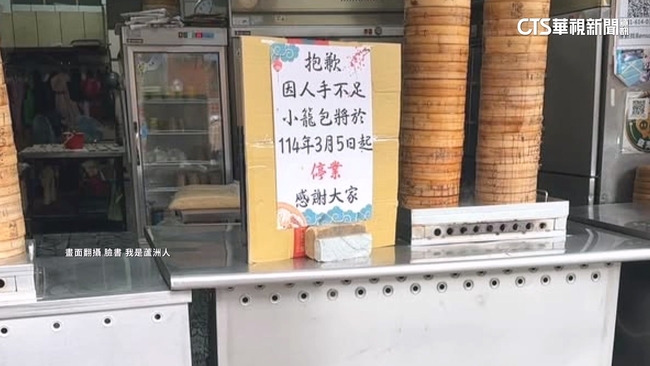 CTS華視新聞網
抱歉
因人手不足
小籠包將於
114年3月5日起
停業
感謝大家
畫面翻攝 臉書 我是蘆洲人